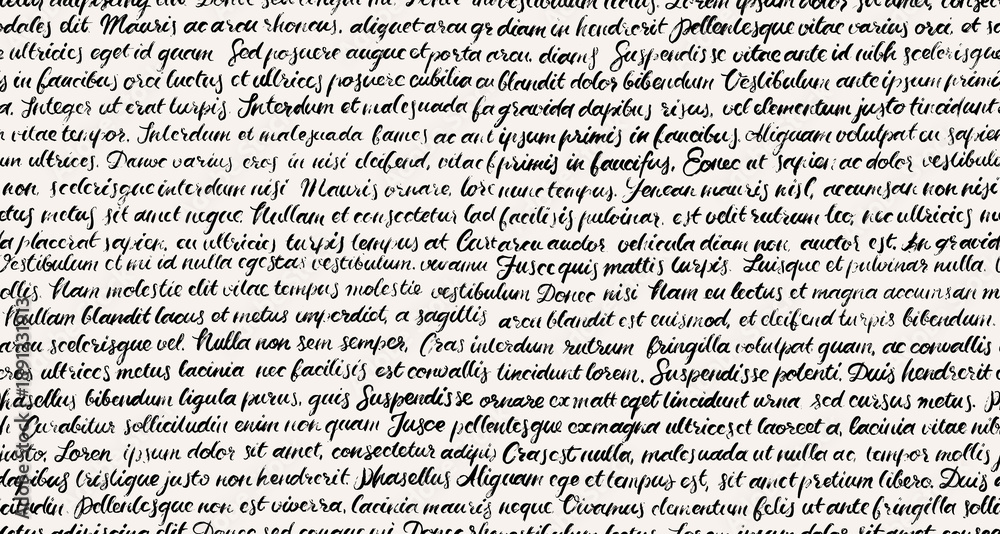 adipiscing elit. Donec sed congue mi. Donec vestibulum lectus. Lorem ipsum dolor sit amet, consec
odales elit. Mauris ac arcu rhoncus, aliquet arcu gr diam in hendrerit Pellentesque vitae varius orci, et so
e ultricies eget id quam Sed posuere augue et porta arcu, diam Suspendisse vitae ante id nibh scelerisque
s in faucibus orci luctus et ultrices posuere cubilia cu blandit dolor bibendum Vestibulum ante ipsum primi
a. Integer ut erat turpis. Interdum et malesuada fa gravida dapibus risus, vel elementum justo tincidunt
n vitae tempor. Interdum et malesuada fames ac ant ipsum primis in faucibus. Aliquam volutpat cu sapien
um ultrices. Danwe varius eros in nisi eleifend, vitae primis in faucifus, Eonec at sapien; ac dolor vestibulu
non, scelerisque interdum nisi Mauris ornare, lore nunc tempus. Yenean mauris nisl, accumsan non nisi
ctus metus sit amet neque. Nullam et consectetur lad facilisis pulvinar, est velit rutrum leo, nec ultricies nu
la placerat sapien, cu ultricies turpis tempus at Curt arcu auctor vehicula diam non, auctor est. In gravid
Vestibulum et mi id nulla egestas vestibulum. vivamu Fusce quis mattis turpis. Luisque et pulvinar nulla.
ollis. Nam molestie elit vitae tempus molestie vestibulum Donec nisi Nam eu lectus et magna accumsan m
Nullam blandit lacus et metus imperdiet, a sagittis arcu blandit est euismod, et eleifend turpis bibendum.
arcu scelerisque vel. Nulla non sem semper, Cras interdum rutrum fringilla volutpat quam, ac convallis
cros ultrices metus lacinia nec facilisis est convallis tincidunt lorem. Suspendisse potenti. Duis hendrerit
hasellus bibendum ligula purus, quis Suspendisse ornare ex matt eget tincidunt urna sed cursus metus. P
Curabitur sollicitudin enim non quam Jusce pellentesque ex magna ultrices et laoreet a, lacinia vitae nib
justo. Loren ipsum dolor sit amet, consectetur adipi; Cras est nulla, malesuada ut nulla ac, tempor mollis
dapibus tristique justo non hendrerit. Phasellus Aliquam ege et tempus est, sit amet pretium libero. Duis
cidun. Pellentesque non est viverra, lacinia mauris neque Vivamus elementum felis ut ante fringilla solli
ctur adipiscing elit Donec sed congue mi Donec rhos vestibulum luctus Lorem ipsum dolor sit amet, consec
Adobe Stock | #1991231913